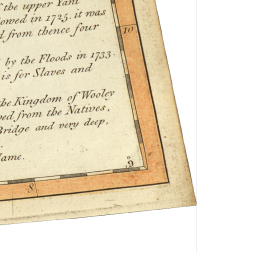 the upper Yani
owed in 1725. it was
d from thence four
by the Floods in 1733.
is for Slaves and
the Kingdom of Wooley
ved from the Natives,
Bridge and very deep,
Name.
10
9
8